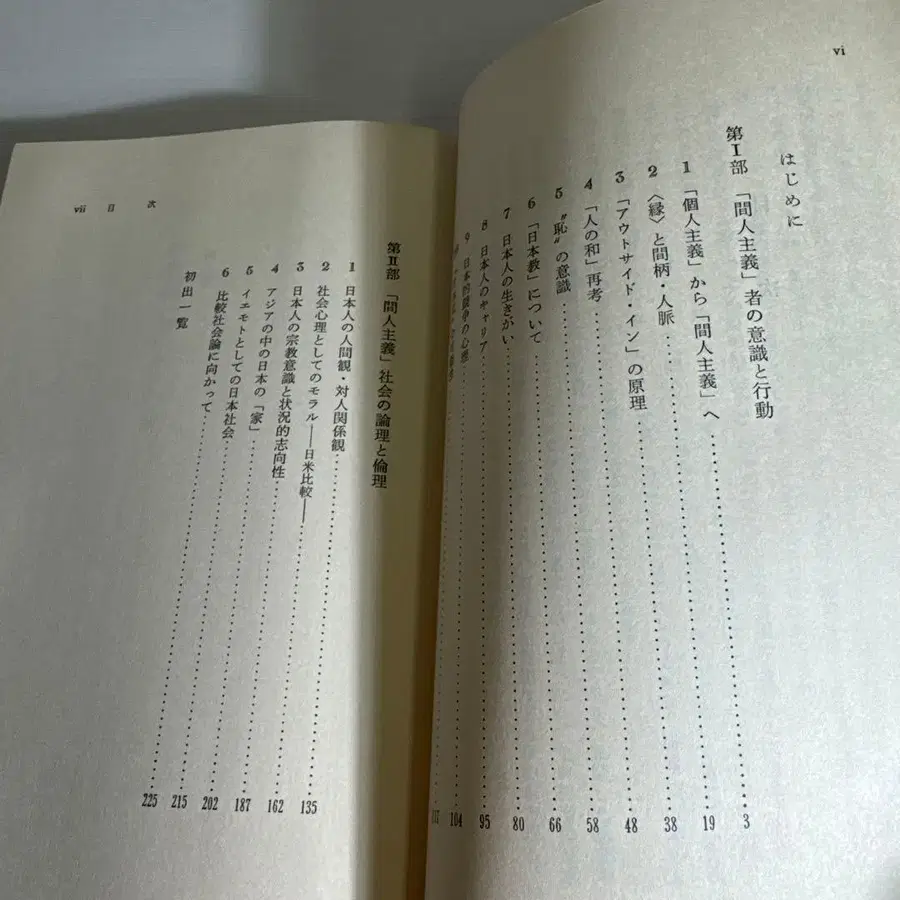 vi
はじめに
第Ⅰ部 「間人主義」者の意識と行動
1 「個人主義」から「間人主義」へ……3
2 〈縁〉と間柄・人脈……19
3 「アウトサイド・イン」の原理……38
4 「人の和」再考……48
5 “恥”の意識……58
6 「日本教」について……66
7 日本人の生きがい……80
8 日本人のキャリア……95
9 日本的競争の心理……104
第Ⅱ部 「間人主義」社会の論理と倫理
1 日本人の人間観・対人関係観……135
2 社会心理としてのモラル——日米比較——
3 日本人の宗教意識と状況的志向性……162
4 アジアの中の日本の「家」……187
5 イエモトとしての日本社会……202
6 比較社会論に向かって……215
初出一覧……225
vii 目 次